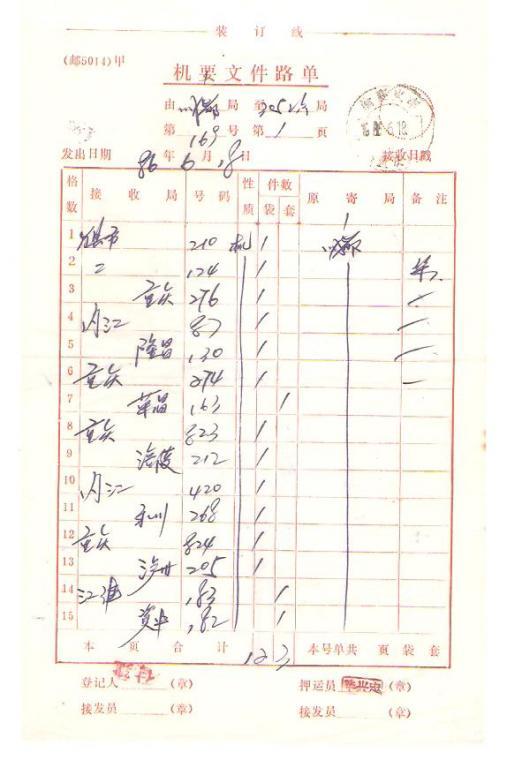 装 订 线
(邮5014)甲
机要文件路单
由 成都 局 至 局
第 169 号 第 1 页
发出日期 86 年 6 月 18 日 接收日戳
格数 接 收 局 号 码 性质 件数 袋 套 原 寄 局 备 注
1 210 机 1 成都
2 〃 124 1
3 重庆 276 1
4 内江 87 1
5 隆昌 130 1
6 重庆 274 1
7 荣昌 163 1
8 重庆 823 1
9 涪陵 212 1
10 内江 420 1
11 永川 268 1
12 重庆 824 1
13 泸州 205 1
14 江津 183 1
15 资中 182 1
本 页 合 计 12 3 本号单共 页 袋 套
登记人 (章) 押运员 (章)
接发员 (章) 接发员 (章)